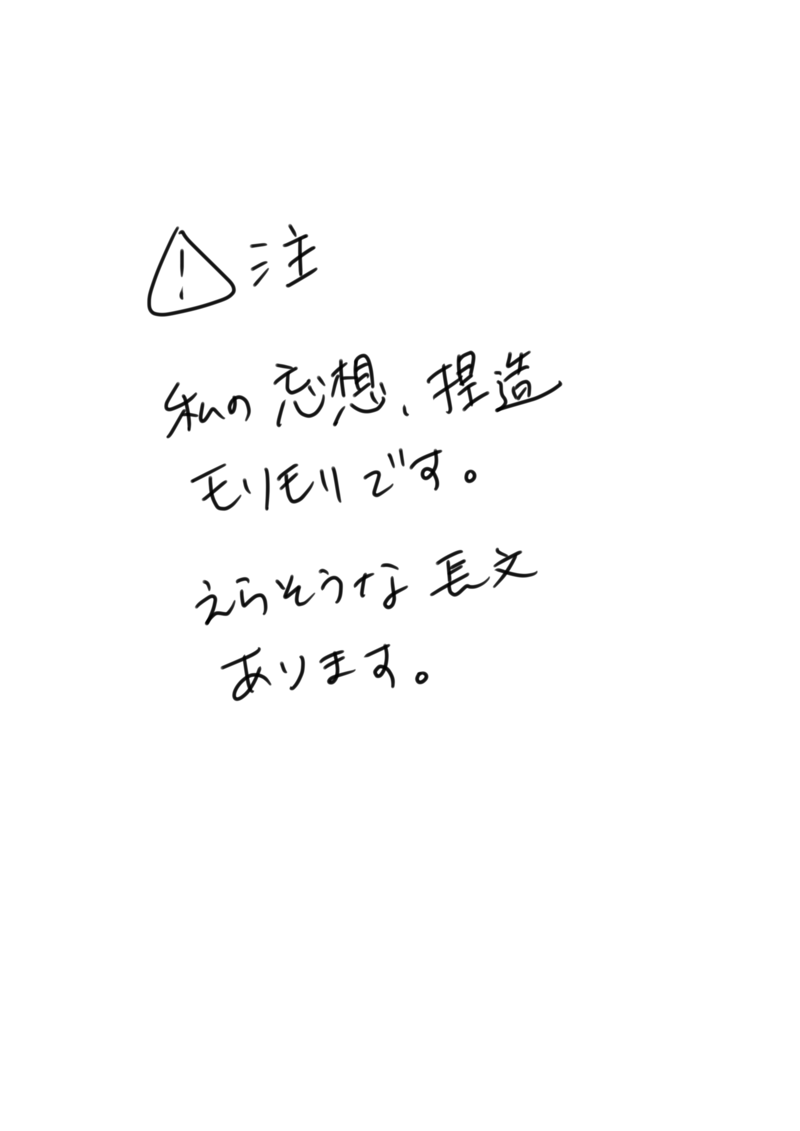 ⚠注
私の忘想、捏造
モリモリです。
えらそうな長文
あります。